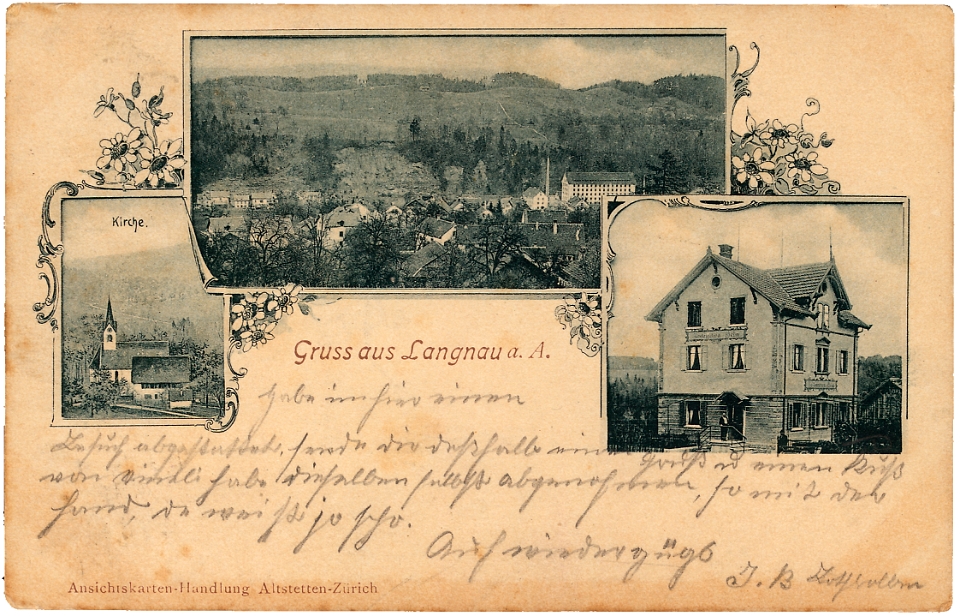 Kirche.
Gruss aus Langnau a. A.
habe im hier einen
Besuch abgestattet, sende dir deshalb einen Gruß u einen Kuß
von habe dieselben selbst abgenommen, so mit der
Hand, du weißt jo scho.
Auf wiedergügs
J. B
Ansichtskarten-Handlung Altstetten-Zürich